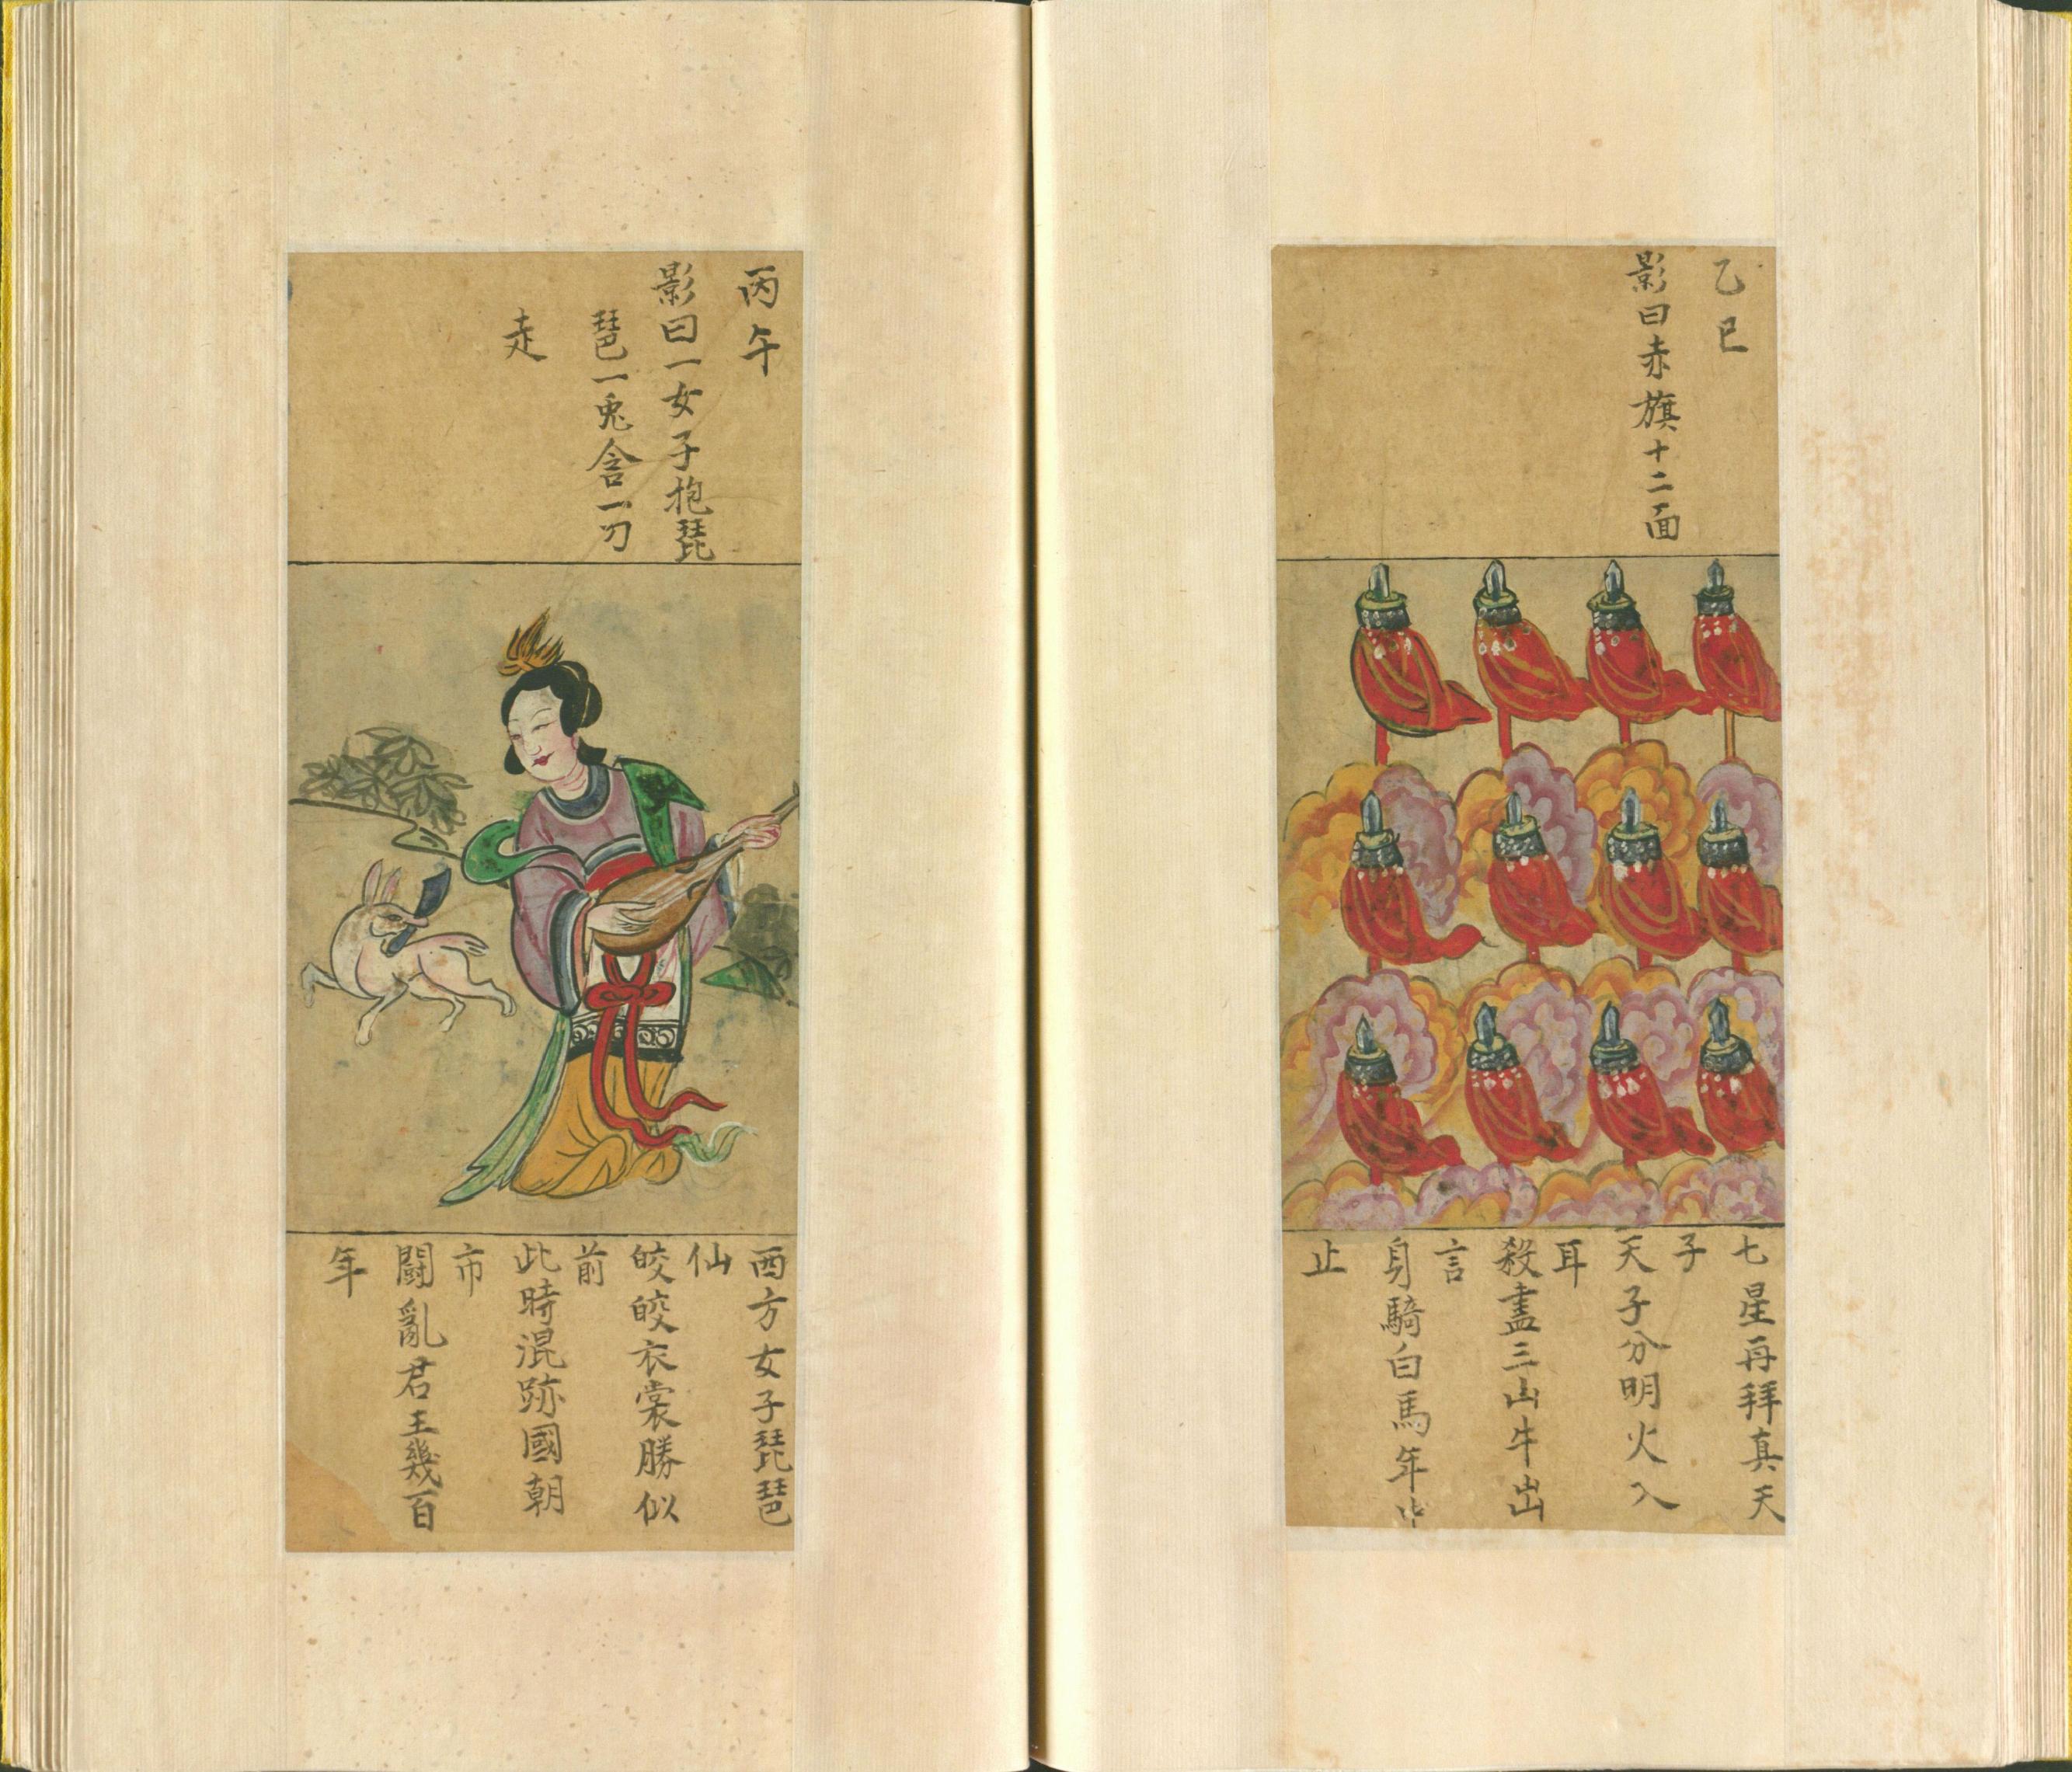 乙巳
影曰赤旗十二面
七星再拜真天
子
天子分明火入
耳
殺盡三山牛出
言
身騎白馬年
止
丙午
影曰一女子抱琵
琶一兎含一刀
走
西方女子琵琶
仙
皎皎衣裳勝似
前
此時混跡國朝
市
闘亂君王幾百
年